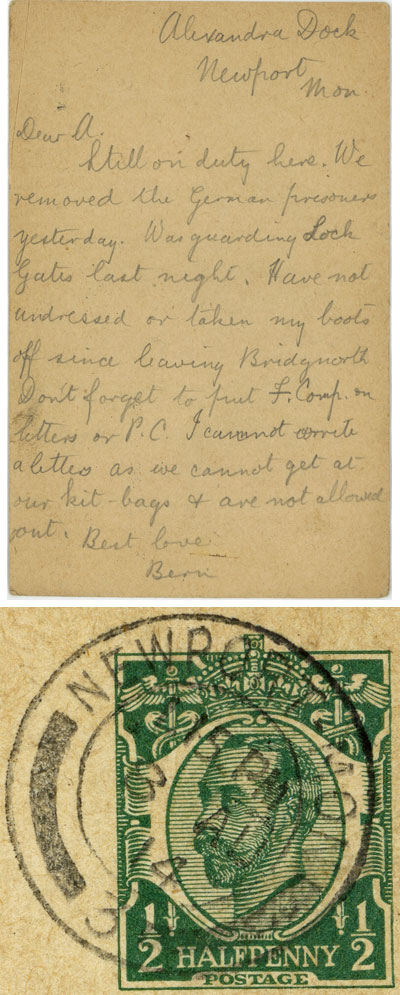 Alexandra Dock
Newport
Mon.
Dear A.
Still on duty here. We
removed the German prisoners
yesterday. Was guarding Lock
Gates last night. Have not
undressed or taken my boots
off since leaving Bridgnorth
Don't forget to put F. Comp. on
letters or P.C. I cannot write
a letter as we cannot get at
our kit-bags & are not allowed
out. Best love
Bern
NEWPORT. MON
.15 PM
AU
14
1/2 HALFPENNY 1/2
POSTAGE